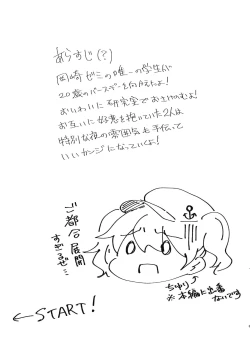 あらすじ(?)
岡崎ゼミの唯一の学生が
20歳のバースデーを向えたよ!
おいわいに研究室でお酒のむよ!
お互いに好意を抱いていた2人は
特別な夜の雰囲気も手伝って
いいカンジになっていくよ!
ご都合展開
すぎるぜ…
ちゆり
※本編に出番
ないです
←START!